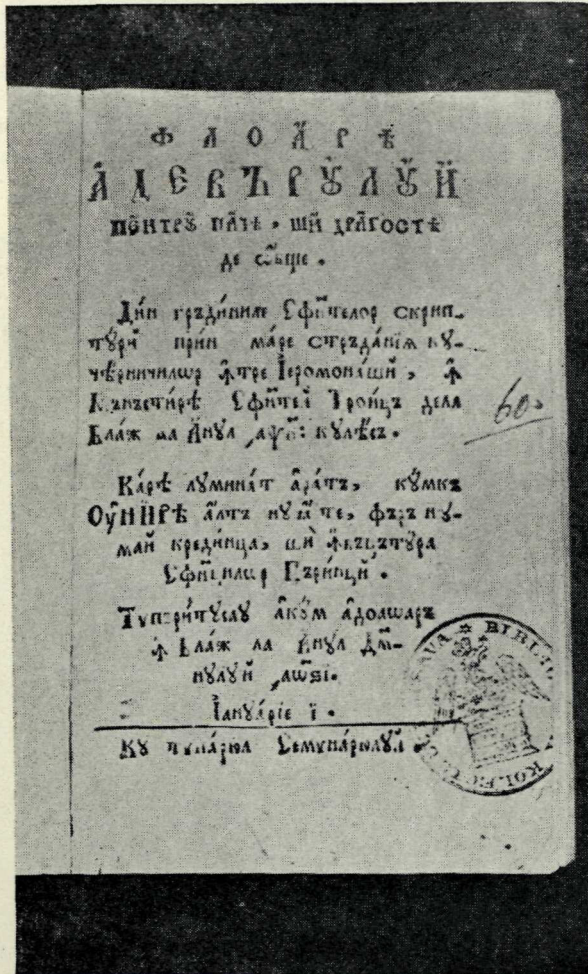 ФЛОАРѢ
АДЕВЪРꙊЛꙊЙ
ПЕНТРꙊ ПАЧЕ, ШИ ДРАГОСТѢ
ДЕ ѠБЩЕ.
Дин грѫдиниле Сфинтелор скрип-
тꙋри прин маре стрѫданїѧ кꙋ-
чѣрничилѡр ꙟтре Їеромонаши, ꙟ
Мънъстирѣ Сфинтей Троицъ дела
Блаж ла Анул ҂аѱн: кулѣсъ.
Карѣ луминат аратъ, кꙋмкъ
ОУНИРѢ алтъ нꙋ ꙗсте, фъръ нꙋ-
май крединца, ши ꙟвъцътура
Сфинцилѡр Пъринци.
Тѵпъритусау акꙋм адоаѡаръ
ꙟ Блаж ла Анул Дм-
нꙋлꙋй ҂аѡѕі.
Їануарїе ї.
Кꙋ типарюл Семинарюлꙋй.
60
BIBLIO